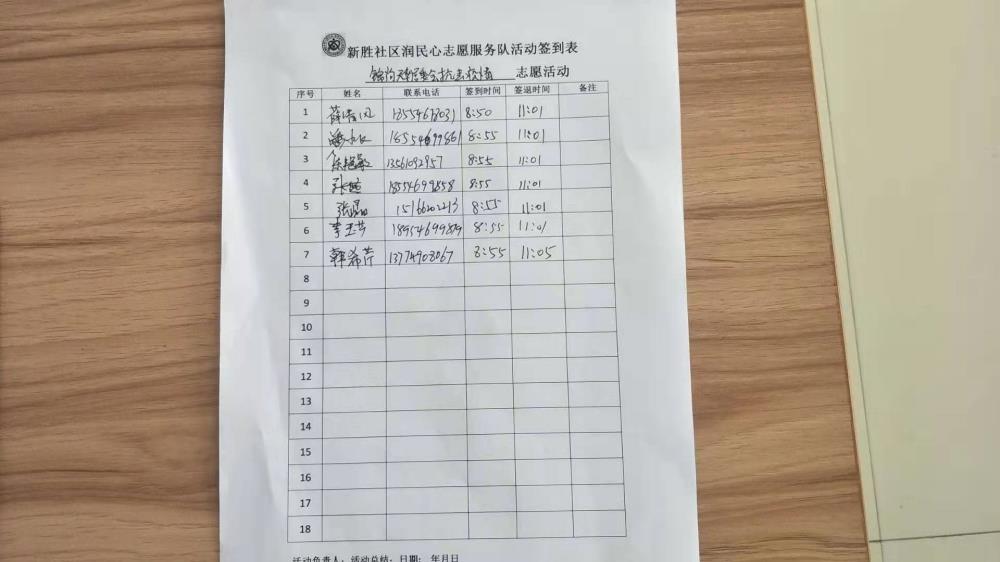 新胜社区润民心志愿服务队活动签到表
志愿活动
序号 姓名 联系电话 签到时间 签退时间 备注
1 薛清风 8:50 11:01
2 8:55 11:01
3 13561092957 8:55 11:01
4 18554699858 8:55 11:01
5 张晶 15166202213 8:55 11:01
6 李玉芳 8:55 11:01
7 韩希芹 13774908067 8:55 11:05
8
9
10
11
12
13
14
15
16
17
18
活动负责人: 活动总结: 日期: 年月日